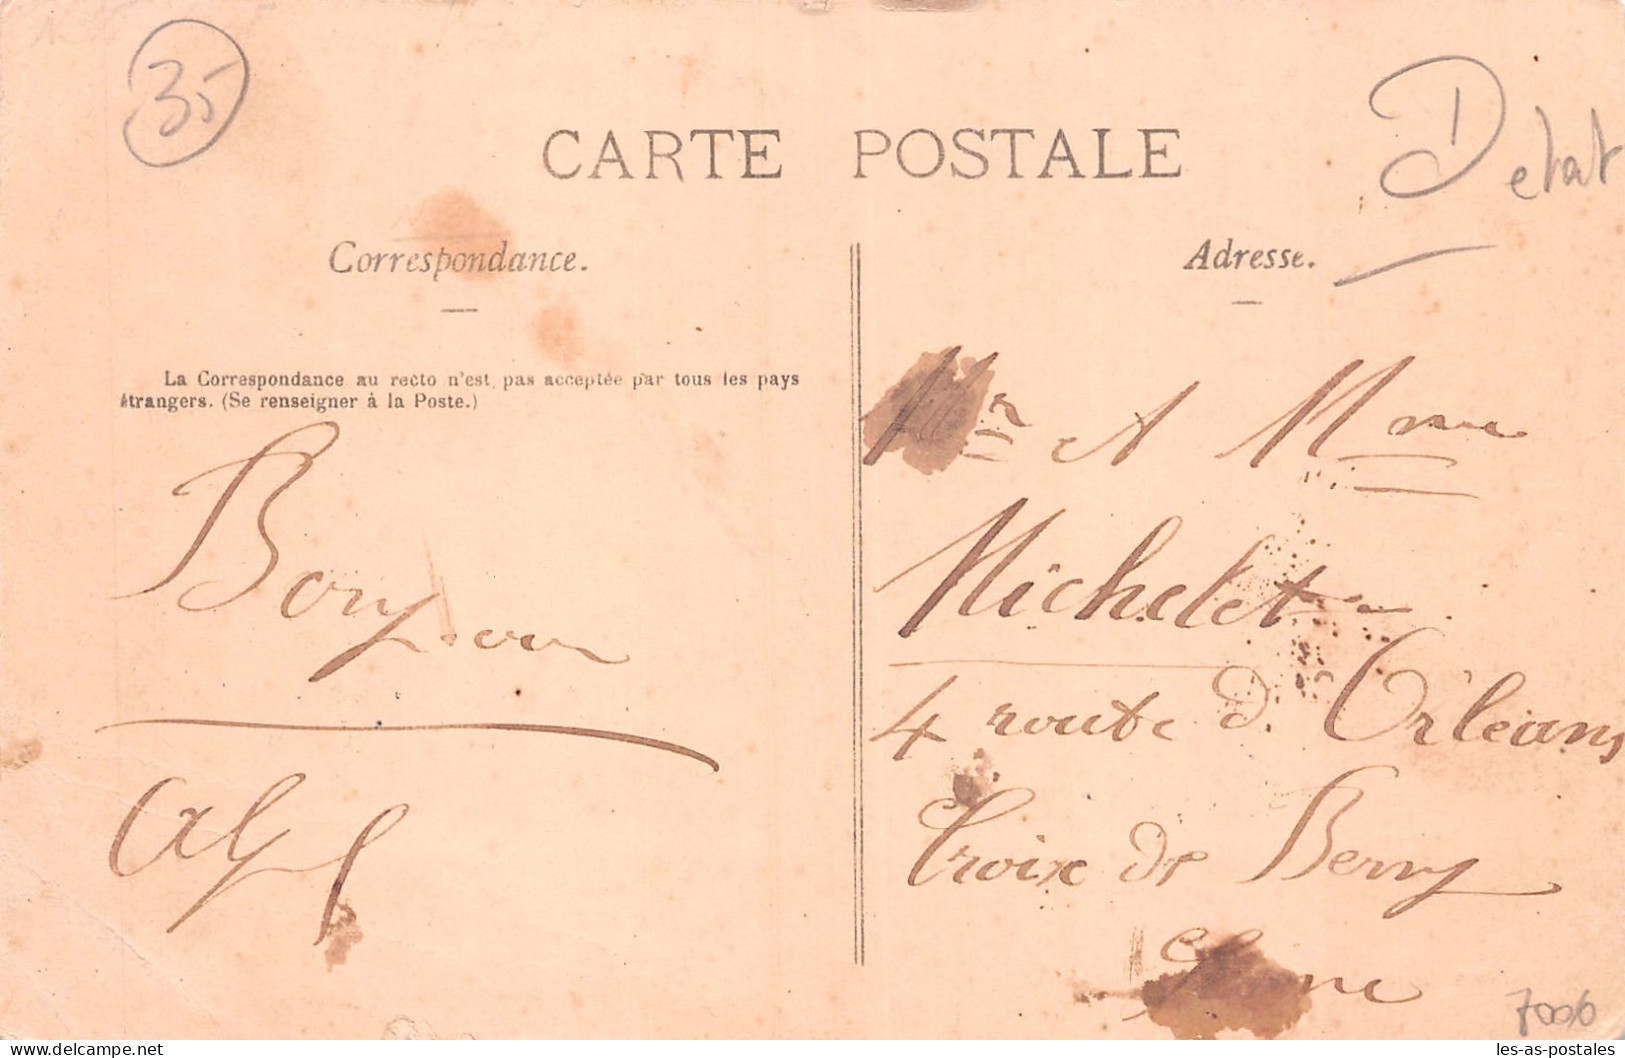 35
CARTE POSTALE
Detat
Correspondance.
Adresse.
La Correspondance au recto n'est pas acceptée par tous les pays
étrangers. (Se renseigner à la Poste.)
Mr A Mme
Michelet
4 route d'Orléans
Croix de Berny
Seine
7006
les-as-postales
www.delcampe.net